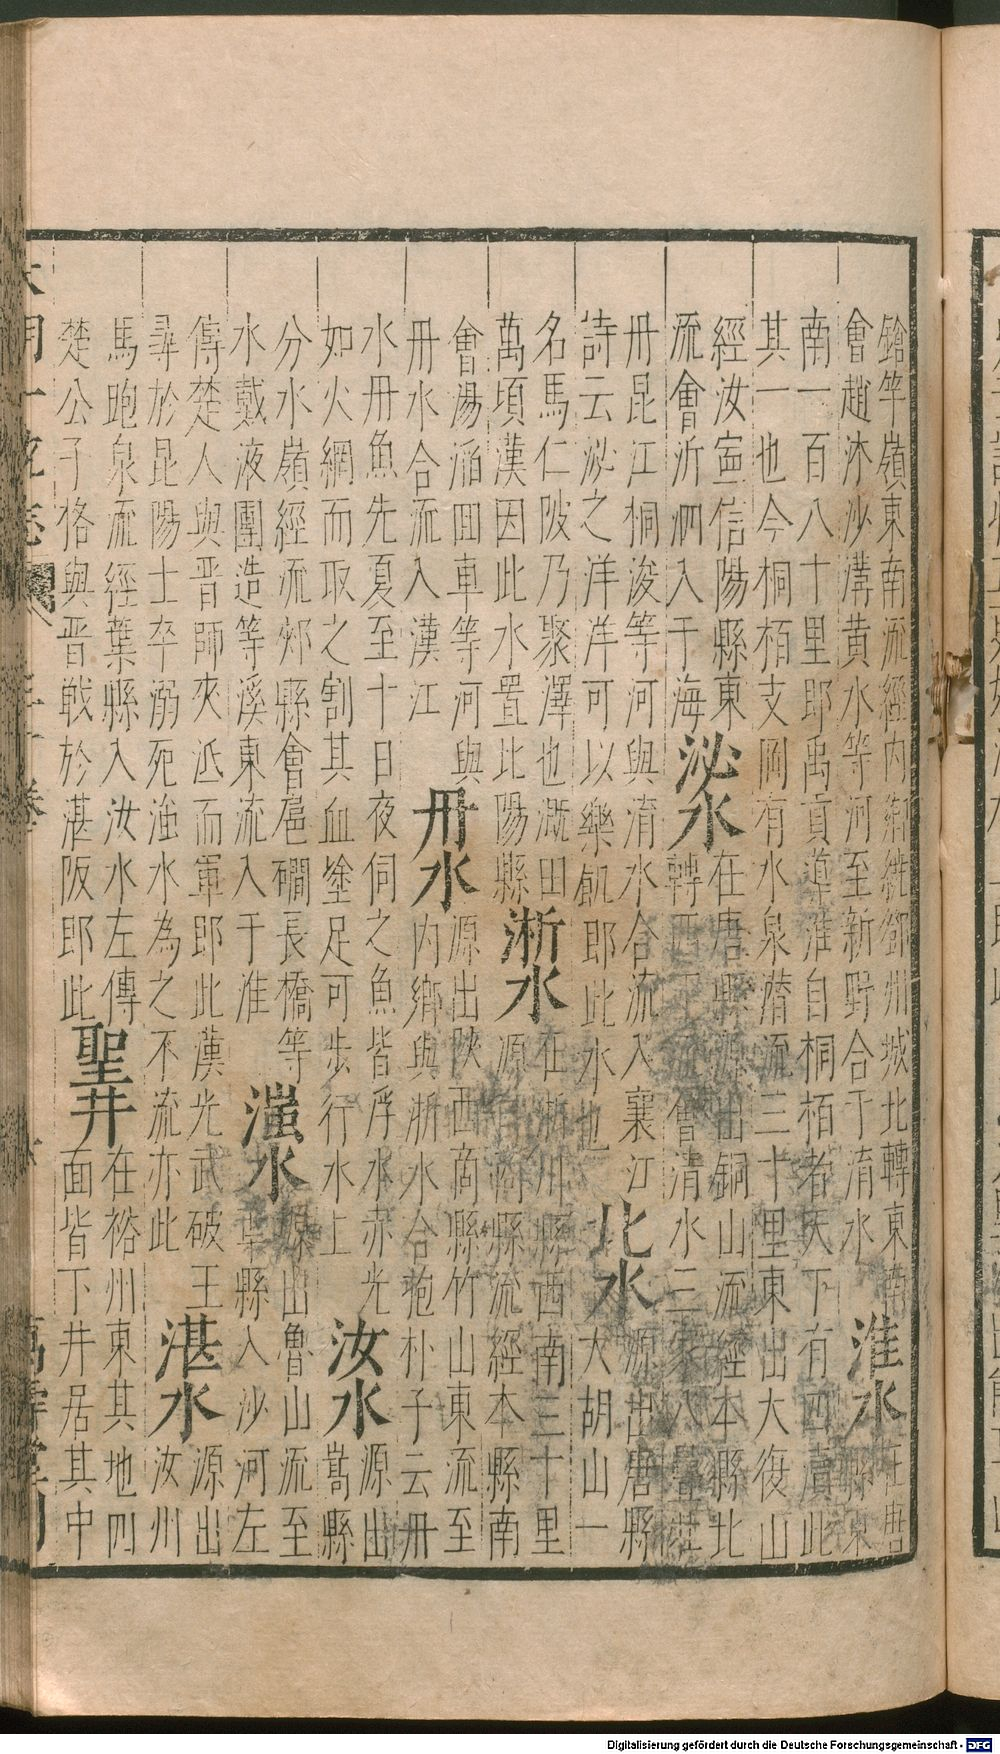 鎗竿嶺東南流經内鄉統鄧州城北轉東南
會趙沐沙溝黄水等河至新野合于淯水
淮水
在唐
縣東
南一百八十里即禹貢導淮自桐栢者天下有四瀆此
其一也今桐栢支岡有水泉潜流三十里東出大復山
經汝寧信陽縣東
流會沂泗入于海
泌水
在唐縣源出銅山流經本縣北
轉西下流會清水三家八疊荘
丹昆江桐浚等河與淯水合流入襄江
詩云泌之洋洋可以樂飢即此水也
比水
源出唐縣
大胡山一
名馬仁陂乃聚澤也漑田
萬頃漢因此水置比陽縣
淅水
在淅川縣西南三十里
源自商縣流經本縣南
會湯滔田車等河與
丹水合流入漢江
丹水
源出陜西商縣竹山東流至
内鄉與淅水合抱朴子云丹
水丹魚先夏至十日夜伺之魚皆浮水赤光
如火網而取之割其血塗足可步行水上
汝水
源出
嵩縣
分水嶺經流郟縣會扈磵長橋等
水戴液團造等溪東流入于淮
滍水
源出魯山流至
葉縣入沙河左
傳楚人與晋師夾泜而軍即此漢光武破王
尋於昆陽士卒溺死滍水為之不流亦此
湛水
源出
汝州
馬跑泉流經葉縣入汝水左傳
楚公子格與晋戰於湛阪即此
聖井
在裕州東其地四
面皆下井居其中
大明一統志
三十卷
萬壽堂刊
Digitalisierung gefördert durch die Deutsche Forschungsgemeinschaft - DFG